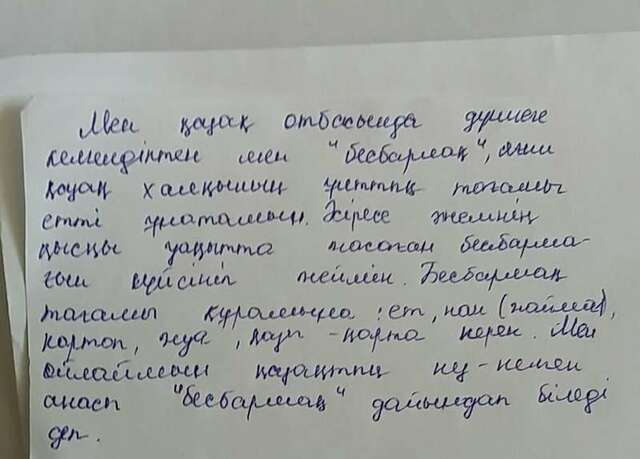 Мен қазақ отбасында дүниеге
келгендіктен мен "бесбармақ", яғни
қазақ халқының ұлттық тағамы
етті ұнатамын. Әсіресе әжемнің
қысқы уақытта жасаған бесбарма-
ғын сүйсініп жеймін. Бесбармақ
тағамы құрамына : ет, нан (жайма),
картоп, жуа, қазы - қарта керек. Мен
ойлаймын қазақтың кез-келген
анасы "бесбармақ" дайындап біледі
деп.